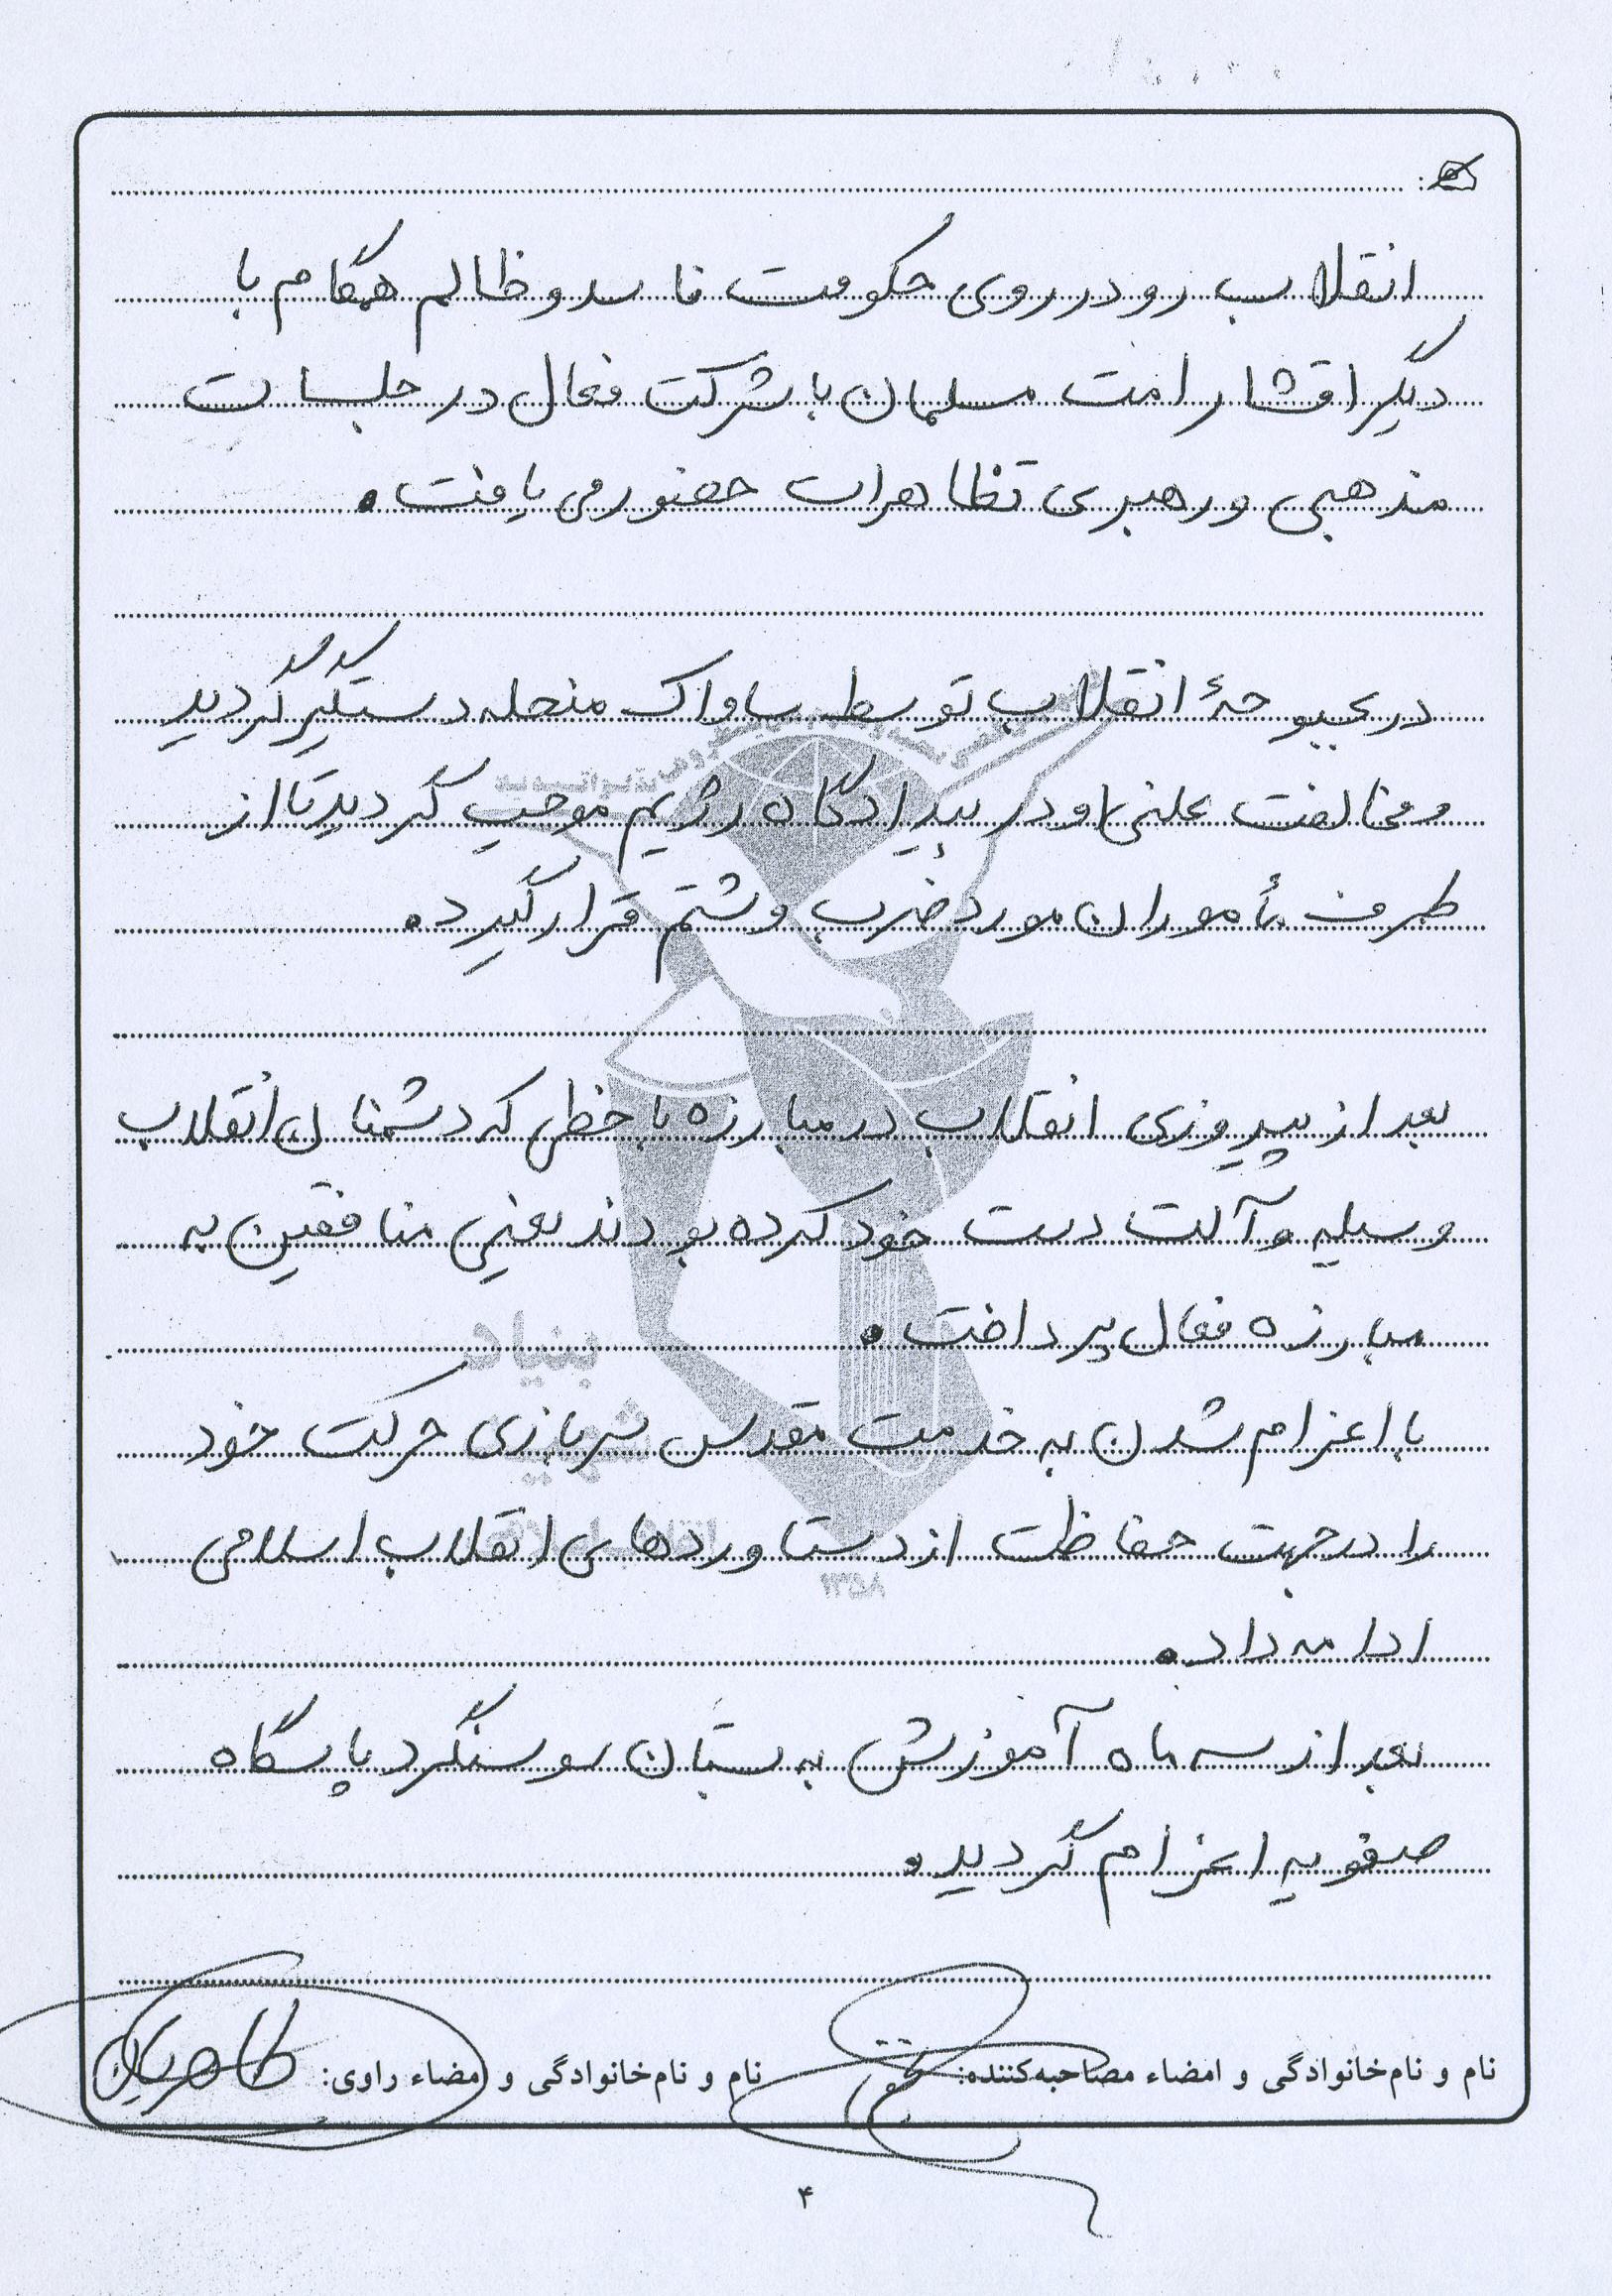 انقلاب رو در روی حکومت فاسد و ظالم همگام با
دیگر اقشار امت مسلمان با شرکت فعال در جلسات
مذهبی و رهبری تظاهرات حضور می یافت.
در بحبوحۀ انقلاب توسط ساواک منحله دستگیر گردید
و مخالفت علنی او در بیدادگاه رژیم موجب گردید تا از
طرف مأموران مورد ضرب و شتم قرار گیرد.
بعد از پیروزی انقلاب در مبارزه با خطی که دشمنان انقلاب
وسیله و آلت دست خود کرده بودند یعنی منافقین به
مبارزه فعال پرداخت.
با اعزام شدن به خدمت مقدس سربازی حرکت خود
را در جهت حفاظت از دستاوردهای انقلاب اسلامی
ادامه داد.
بعد از سه ماه آموزش به بستان سوسنگرد پاسگاه
صفویه اعزام گردید.
بنیاد
شهید
انقلاب اسلامی
۱۳۵۸
نام و نام‌خانوادگی و امضاء مصاحبه‌کننده: نام و نام‌خانوادگی و امضاء راوی: طاهریان
۴